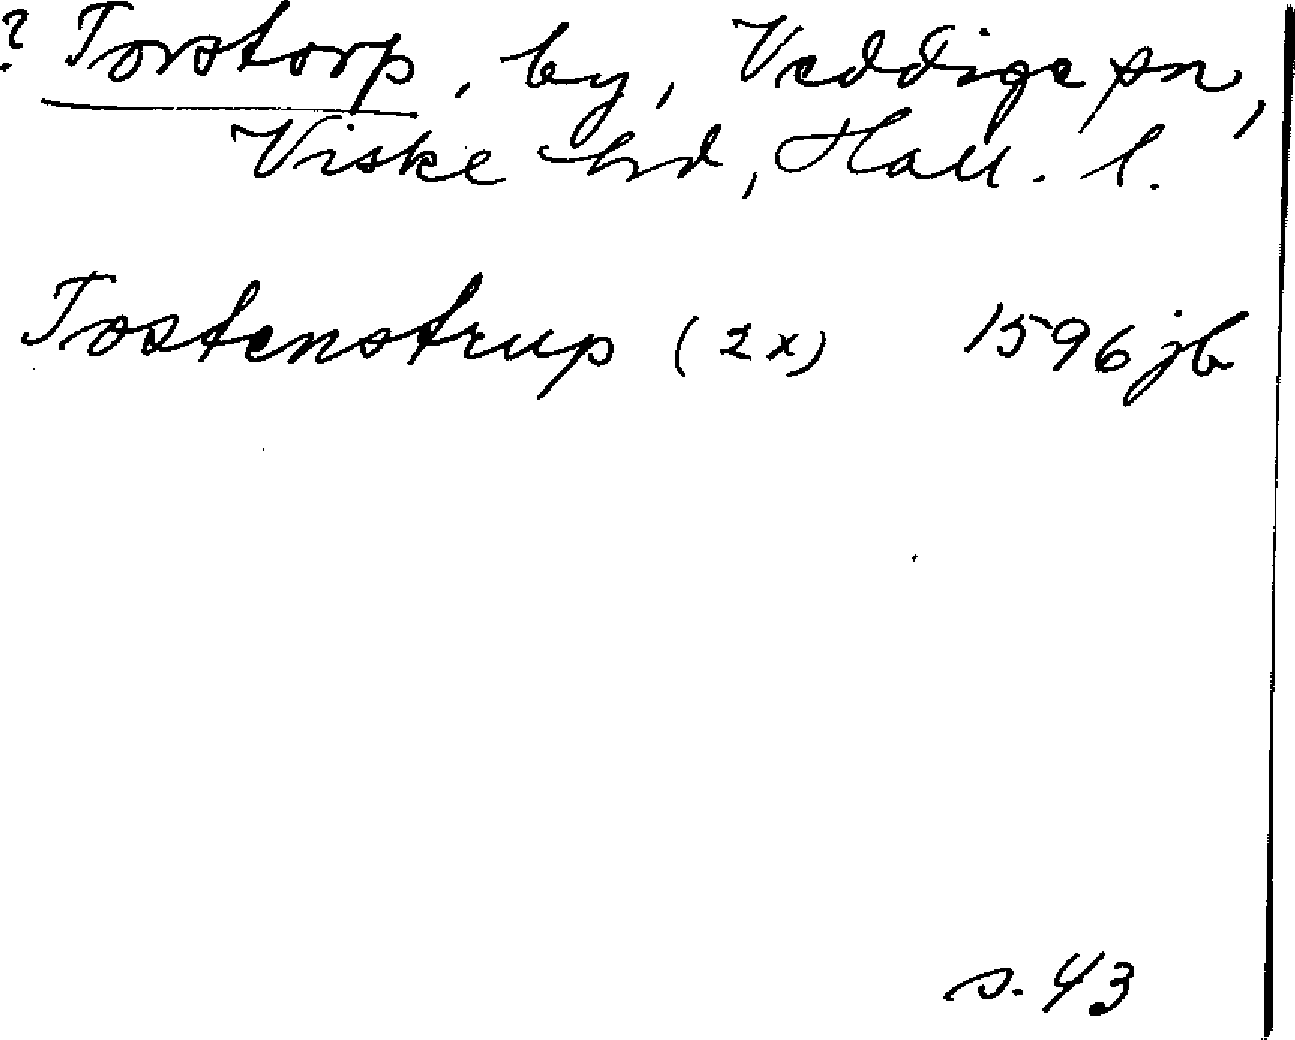 ? Torstorp, by, Veddige sn,
Viske hd, Hall. l.
Tostenstrup (2x) 1596 jb
s. 43